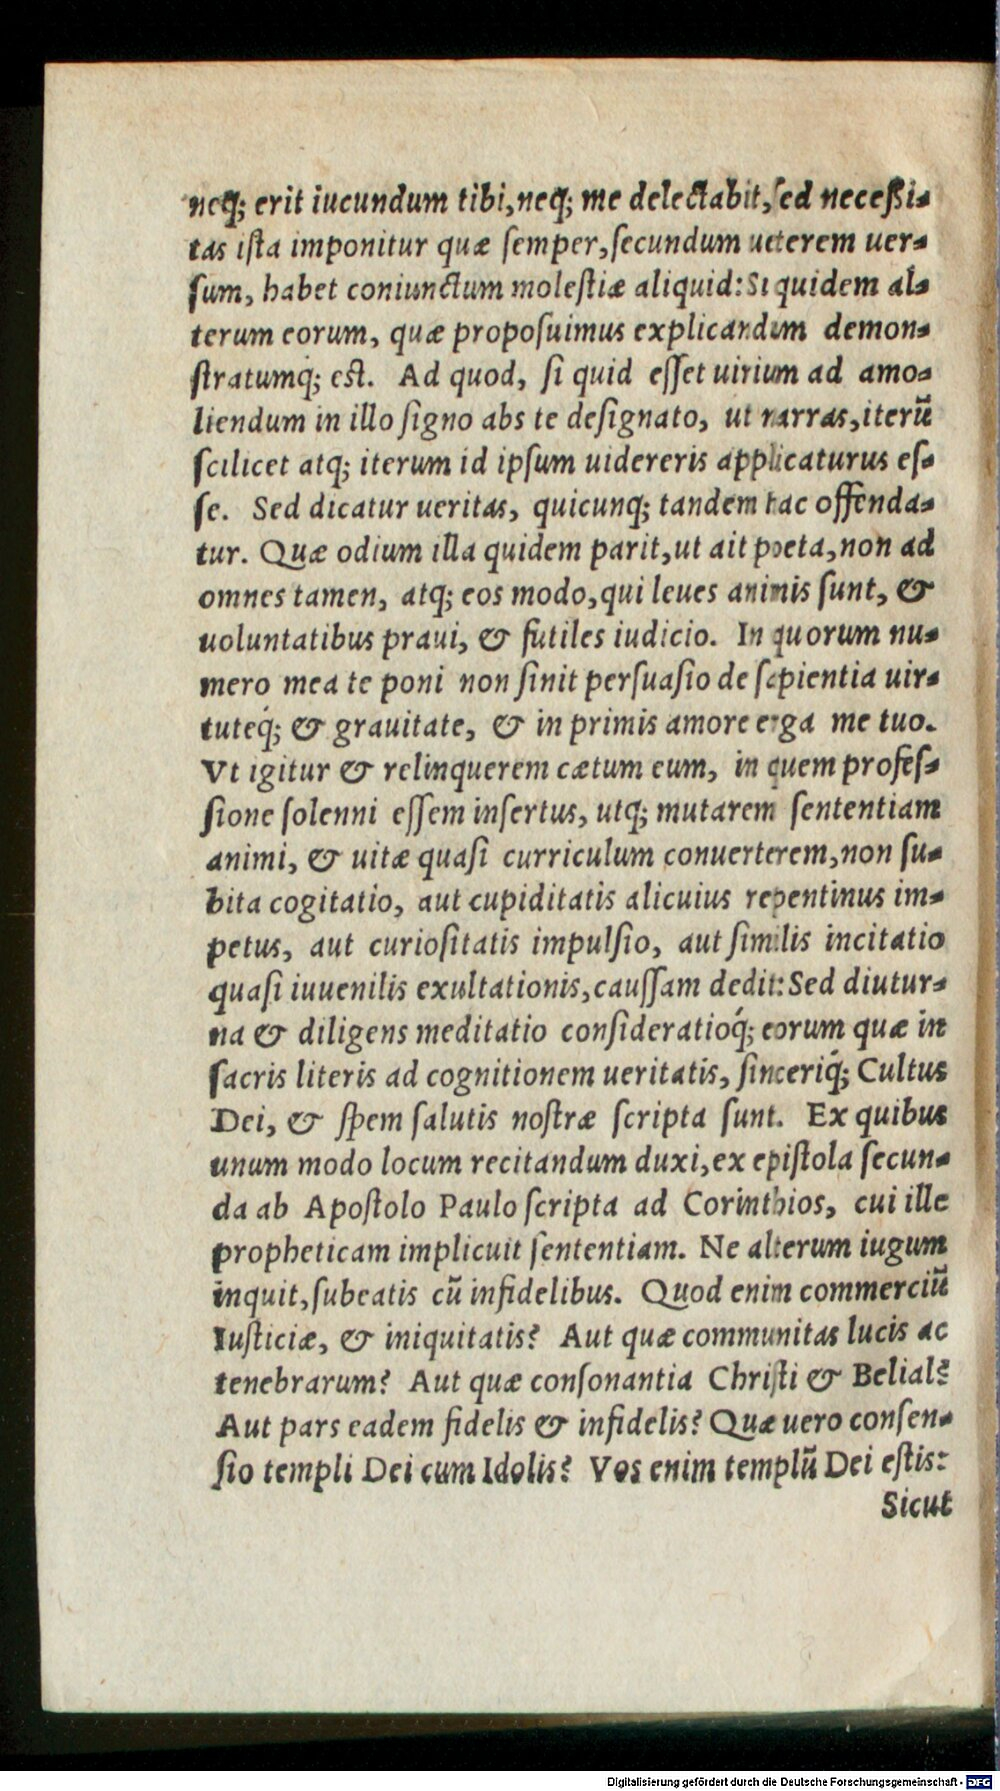 neq; erit iucundum tibi, neq; me delectabit, sed neceßi-
tas ista imponitur quæ semper, secundum ueterem uer-
sum, habet coniunctum molestiæ aliquid: Si quidem al-
terum eorum, quæ proposuimus explicandum demon-
stratumq́; est. Ad quod, si quid esset uirium ad amo-
liendum in illo signo abs te designato, ut narras, iterũ
scilicet atq; iterum id ipsum uidereris applicaturus es-
se. Sed dicatur ueritas, quicunq; tandem hac offenda-
tur. Quæ odium illa quidem parit, ut ait poeta, non ad
omnes tamen, atq; eos modo, qui leues animis sunt, &
uoluntatibus praui, & futiles iudicio. In quorum nu-
mero mea te poni non sinit persuasio de sapientia uir-
tuteq́; & grauitate, & in primis amore erga me tuo.
Vt igitur & relinquerem cætum eum, in quem profes-
sione solenni essem insertus, utq; mutarem sententiam
animi, & uitæ quasi curriculum conuerterem, non su-
bita cogitatio, aut cupiditatis alicuius repentinus im-
petus, aut curiositatis impulsio, aut similis incitatio
quasi iuuenilis exultationis, caussam dedit: Sed diutur-
na & diligens meditatio consideratioq́; eorum quæ in
sacris literis ad cognitionem ueritatis, sinceriq́; Cultus
Dei, & spem salutis nostræ scripta sunt. Ex quibus
unum modo locum recitandum duxi, ex epistola secun-
da ab Apostolo Paulo scripta ad Corinthios, cui ille
propheticam implicuit sententiam. Ne alterum iugum
inquit, subeatis cũ infidelibus. Quod enim commerciũ
Iusticiæ, & iniquitatis? Aut quæ communitas lucis ac
tenebrarum? Aut quæ consonantia Christi & Belial?
Aut pars eadem fidelis & infidelis? Quæ uero consen-
sio templi Dei cum Idolis? Vos enim templũ Dei estis:
Sicut
Digitalisierung gefördert durch die Deutsche Forschungsgemeinschaft - DFG